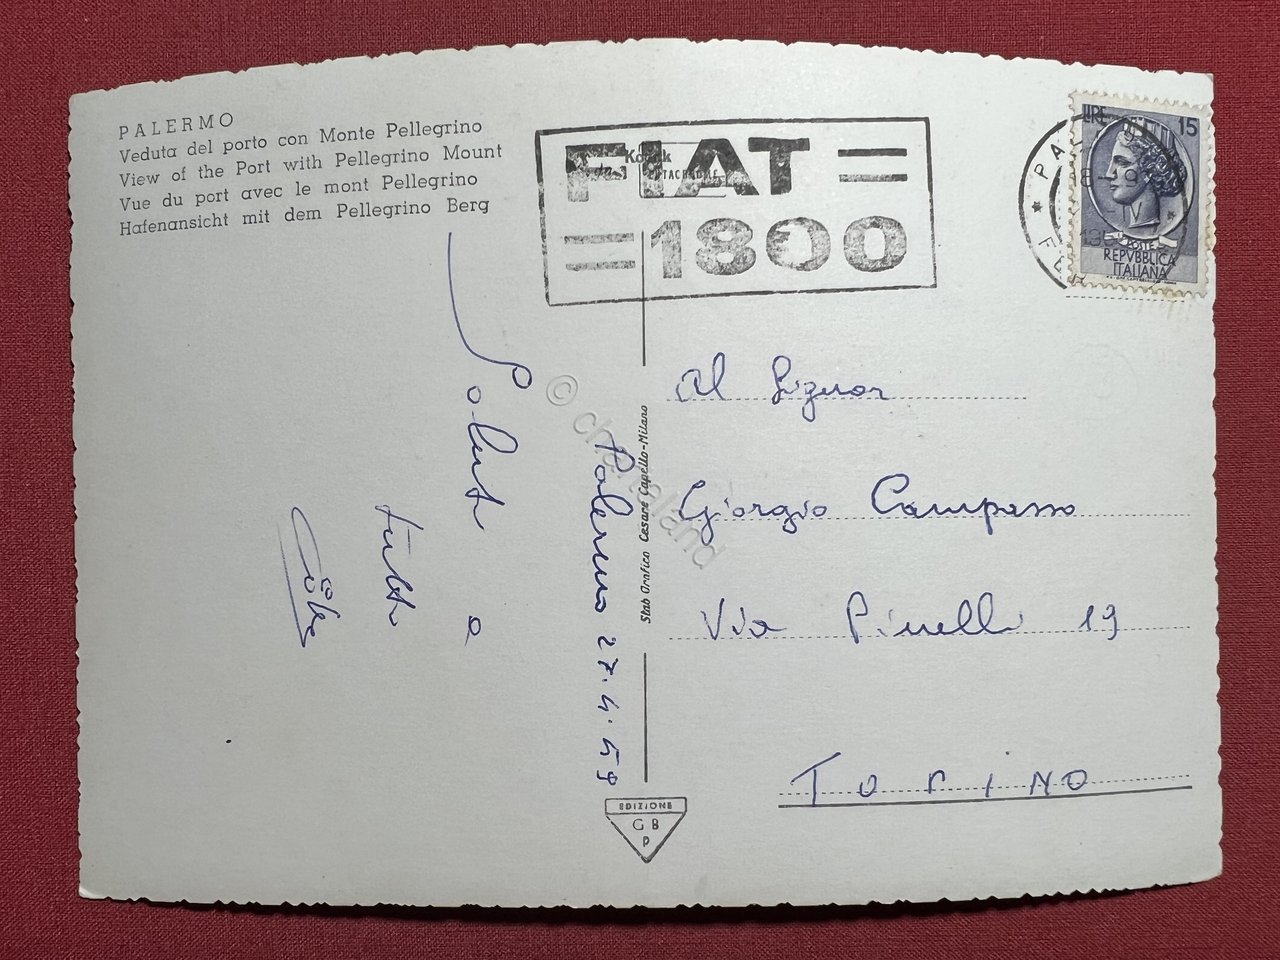 PALERMO
Veduta del porto con Monte Pellegrino
View of the Port with Pellegrino Mount
Vue du port avec le mont Pellegrino
Hafenansicht mit dem Pellegrino Berg
FIAT =
= 1800
Kodak
LIRE 15
POSTE
REPVBBLICA
ITALIANA
Saluti a
tutti
Palermo 27.4.59
Stab Grafico Cesare Capello-Milano
EDIZIONE
G B
P
Al Signor
Giorgio Campasso
Via Pinelli 19
TORINO